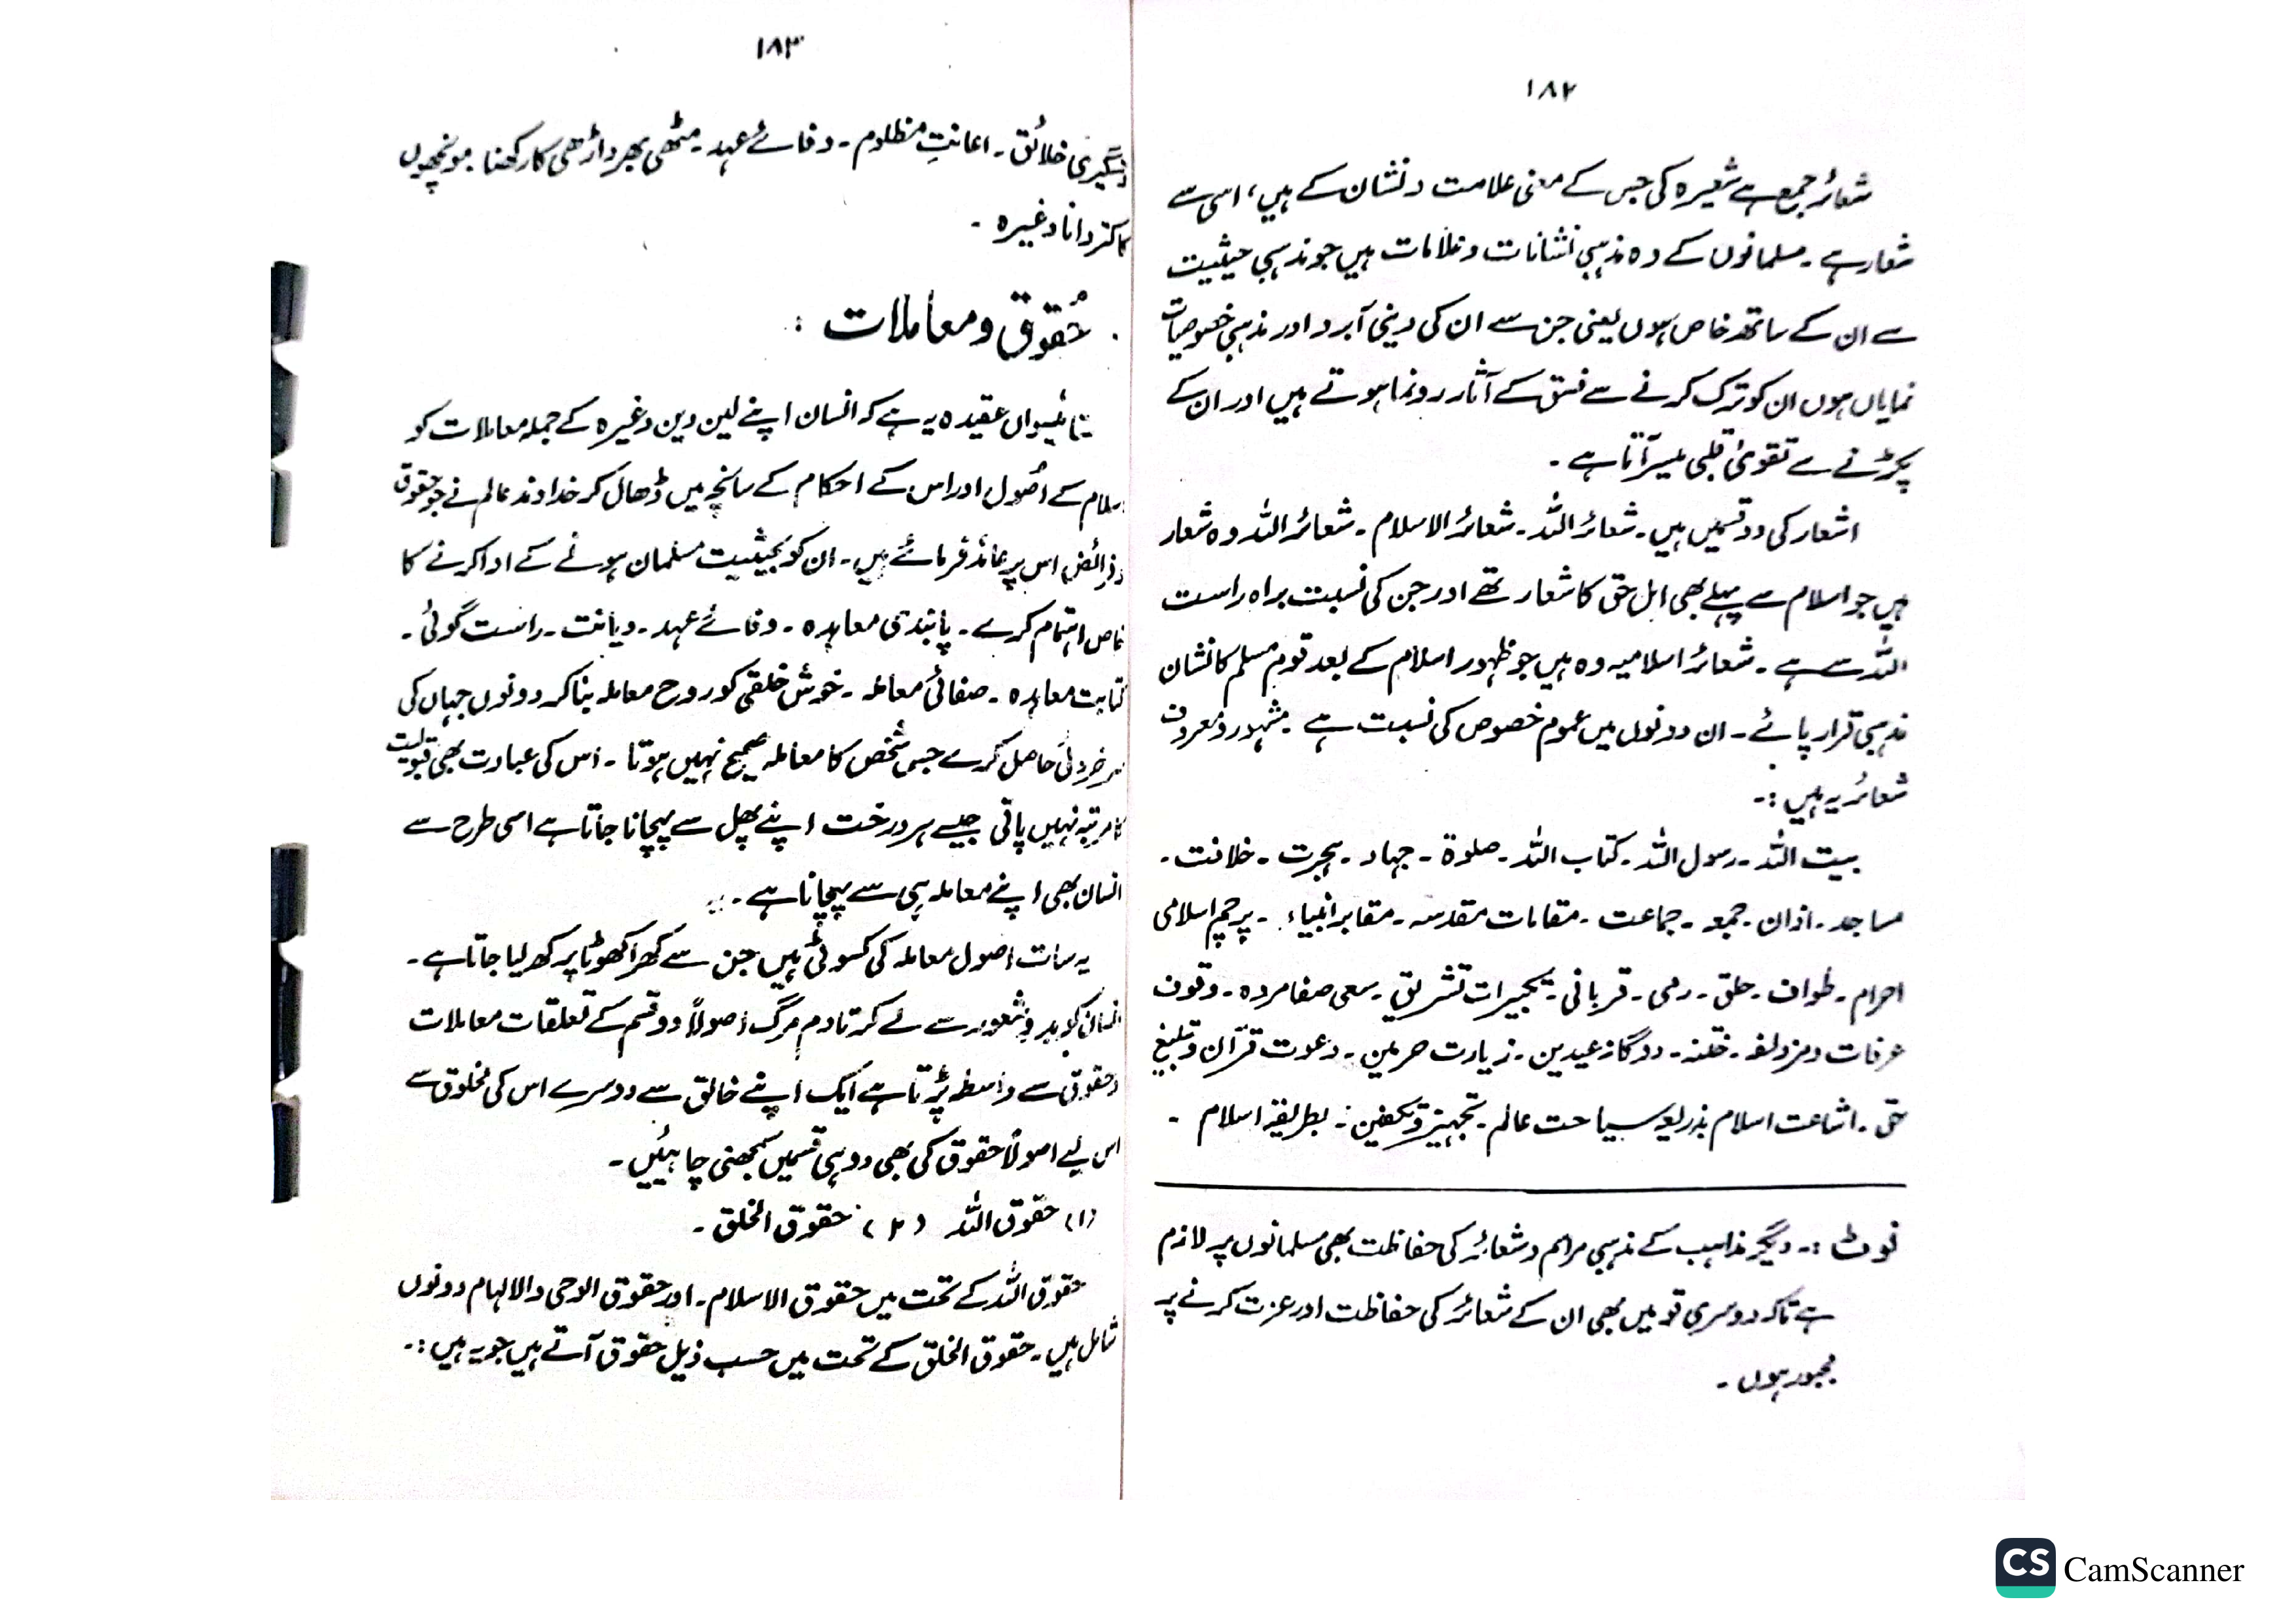 ۱۸۲
شعائر جمع ہے شعیرہ کی جس کے معنی علامت و نشان کے ہیں، اسی سے
شعار ہے۔ مسلمانوں کے وہ مذہبی نشانات و علامات ہیں جو مذہبی حیثیت
سے ان کے ساتھ خاص ہوں یعنی جن سے ان کی دینی آبرو اور مذہبی خصوصیات
نمایاں ہوں ان کو ترک کرنے سے فسق کے آثار رونما ہوتے ہیں اور ان کے
پکڑنے سے تقویٰ قلبی میسر آتا ہے۔
اشعار کی دو قسمیں ہیں۔ شعائر اللہ۔ شعائر الاسلام۔ شعائر اللہ وہ شعار
ہیں جو اسلام سے پہلے بھی اہل حق کا شعار تھے اور جن کی نسبت براہ راست
اللہ سے ہے۔ شعائر اسلامیہ وہ ہیں جو ظہور اسلام کے بعد قوم مسلم کا نشان
مذہبی قرار پائے۔ ان دونوں میں عموم خصوص کی نسبت ہے۔ مشہور و معروف
شعائر یہ ہیں :۔
بیت اللہ۔ رسول اللہ۔ کتاب اللہ۔ صلوۃ۔ جہاد۔ ہجرت۔ خلافت۔
مساجد۔ اذان۔ جمعہ۔ جماعت۔ مقامات مقدسہ۔ مقابر انبیاء۔ پرچم اسلامی
احرام۔ طواف۔ حلق۔ رمی۔ قربانی۔ تکبیرات تشریق۔ سعی صفا مروہ۔ وقوف
عرفات و مزدلفہ۔ ختنہ۔ دوگانہ عیدین۔ زیارت حرمین۔ دعوت قرآن و تبلیغ
حق۔ اشاعت اسلام بذریعہ سیاحت عالم۔ تجہیز و تکفین۔ بطریقہ اسلام۔
نوٹ :۔ دیگر مذاہب کے مذہبی مراسم و شعائر کی حفاظت بھی مسلمانوں پر لازم
ہے تاکہ دوسری قومیں بھی ان کے شعائر کی حفاظت اور عزت کرنے پر
مجبور ہوں۔
۱۸۳
دستگیری خلائق۔ اعانتِ مظلوم۔ وفائے عہد۔ مٹھی بھر داڑھی کا رکھنا۔ مونچھوں
کا کتروانا وغیرہ۔
حُقوق و معاملات :
ستائیسواں عقیدہ یہ ہے کہ انسان اپنے لین دین وغیرہ کے جملہ معاملات کو
اسلام کے اُصول اور اس کے احکام کے سانچہ میں ڈھال کر خداوند عالم نے جو حقوق
و فرائض اس پر عائد فرمائے ہیں۔ ان کو بحیثیت مسلمان ہونے کے ادا کرنے کا
خاص اہتمام کرے۔ پابندی معاہدہ۔ وفائے عہد۔ دیانت۔ راست گوئی۔
کتابت معاہدہ۔ صفائی معاملہ۔ خوش خلقی کو روح معاملہ بنا کر دونوں جہاں کی
سرخروئی حاصل کرے جس شخص کا معاملہ صحیح نہیں ہوتا۔ اُس کی عبادت بھی قبولیت
کا مرتبہ نہیں پاتی جیسے ہر درخت اپنے پھل سے پہچانا جاتا ہے اسی طرح سے
انسان بھی اپنے معاملہ ہی سے پہچانا ہے۔
یہ سات اصول معاملہ کی کسوٹی ہیں جن سے کھرا کھوٹا پرکھ لیا جاتا ہے۔
انسان کو بدو شعور سے لے کر تادم مرگ اصولاً دو قسم کے تعلقات معاملات
و حقوق سے واسطہ پڑتا ہے ایک اپنے خالق سے دوسرے اس کی مخلوق سے
اس لیے اصولاً حقوق کی بھی دو ہی قسمیں سمجھنی چاہئیں۔
(۱) حقوق اللہ (۲) حقوق الخلق۔
حقوق اللہ کے تحت میں حقوق الاسلام۔ اور حقوق الوحی والالہام دونوں
شامل ہیں۔ حقوق الخلق کے تحت میں حسب ذیل حقوق آتے ہیں جو یہ ہیں :۔
CS CamScanner